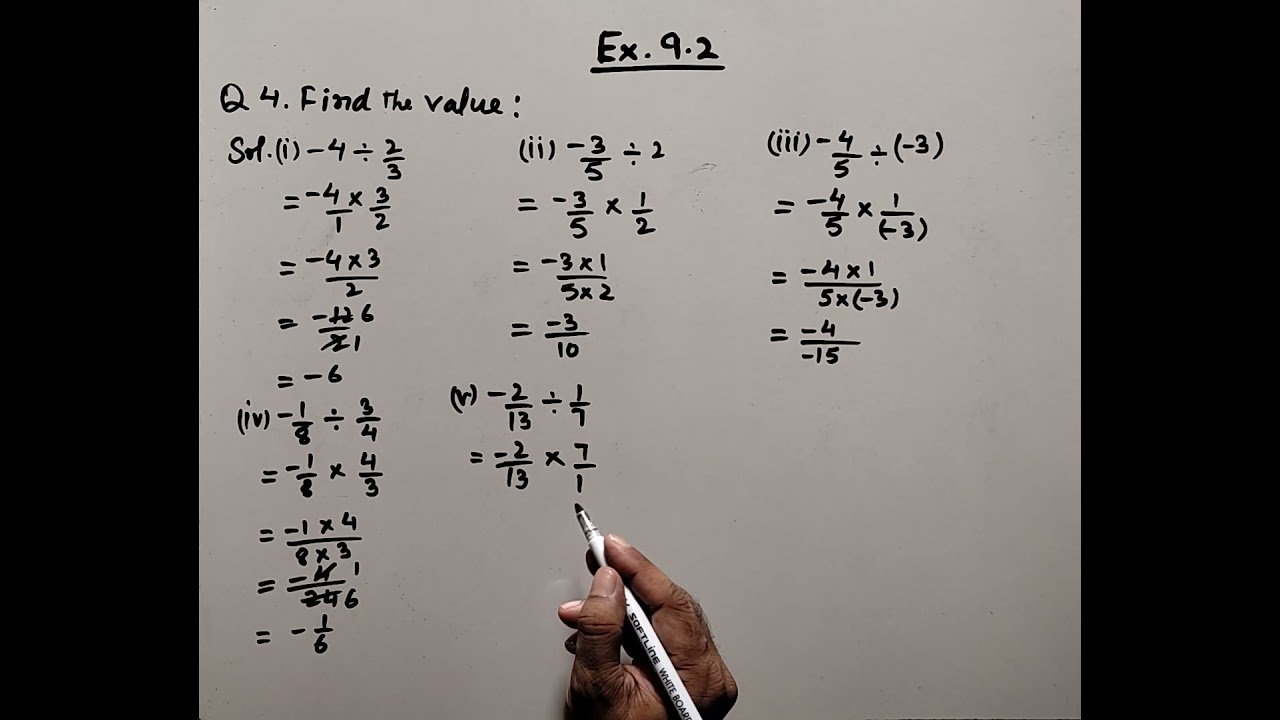 Ex. 9.2
Q 4. Find the value:
Sol. (i) -4 ÷ 2/3
= -4/1 × 3/2
= -4×3/2
= -12 6/2 1
= -6
(ii) -3/5 ÷ 2
= -3/5 × 1/2
= -3×1/5×2
= -3/10
(iii) -4/5 ÷ (-3)
= -4/5 × 1/(-3)
= -4×1/5×(-3)
= -4/-15
(iv) -1/8 ÷ 3/4
= -1/8 × 4/3
= -1×4/8×3
= -4 1/24 6
= -1/6
(v) -2/13 ÷ 1/7
= -2/13 × 7/1
SOFTLINE WHITE BOARD